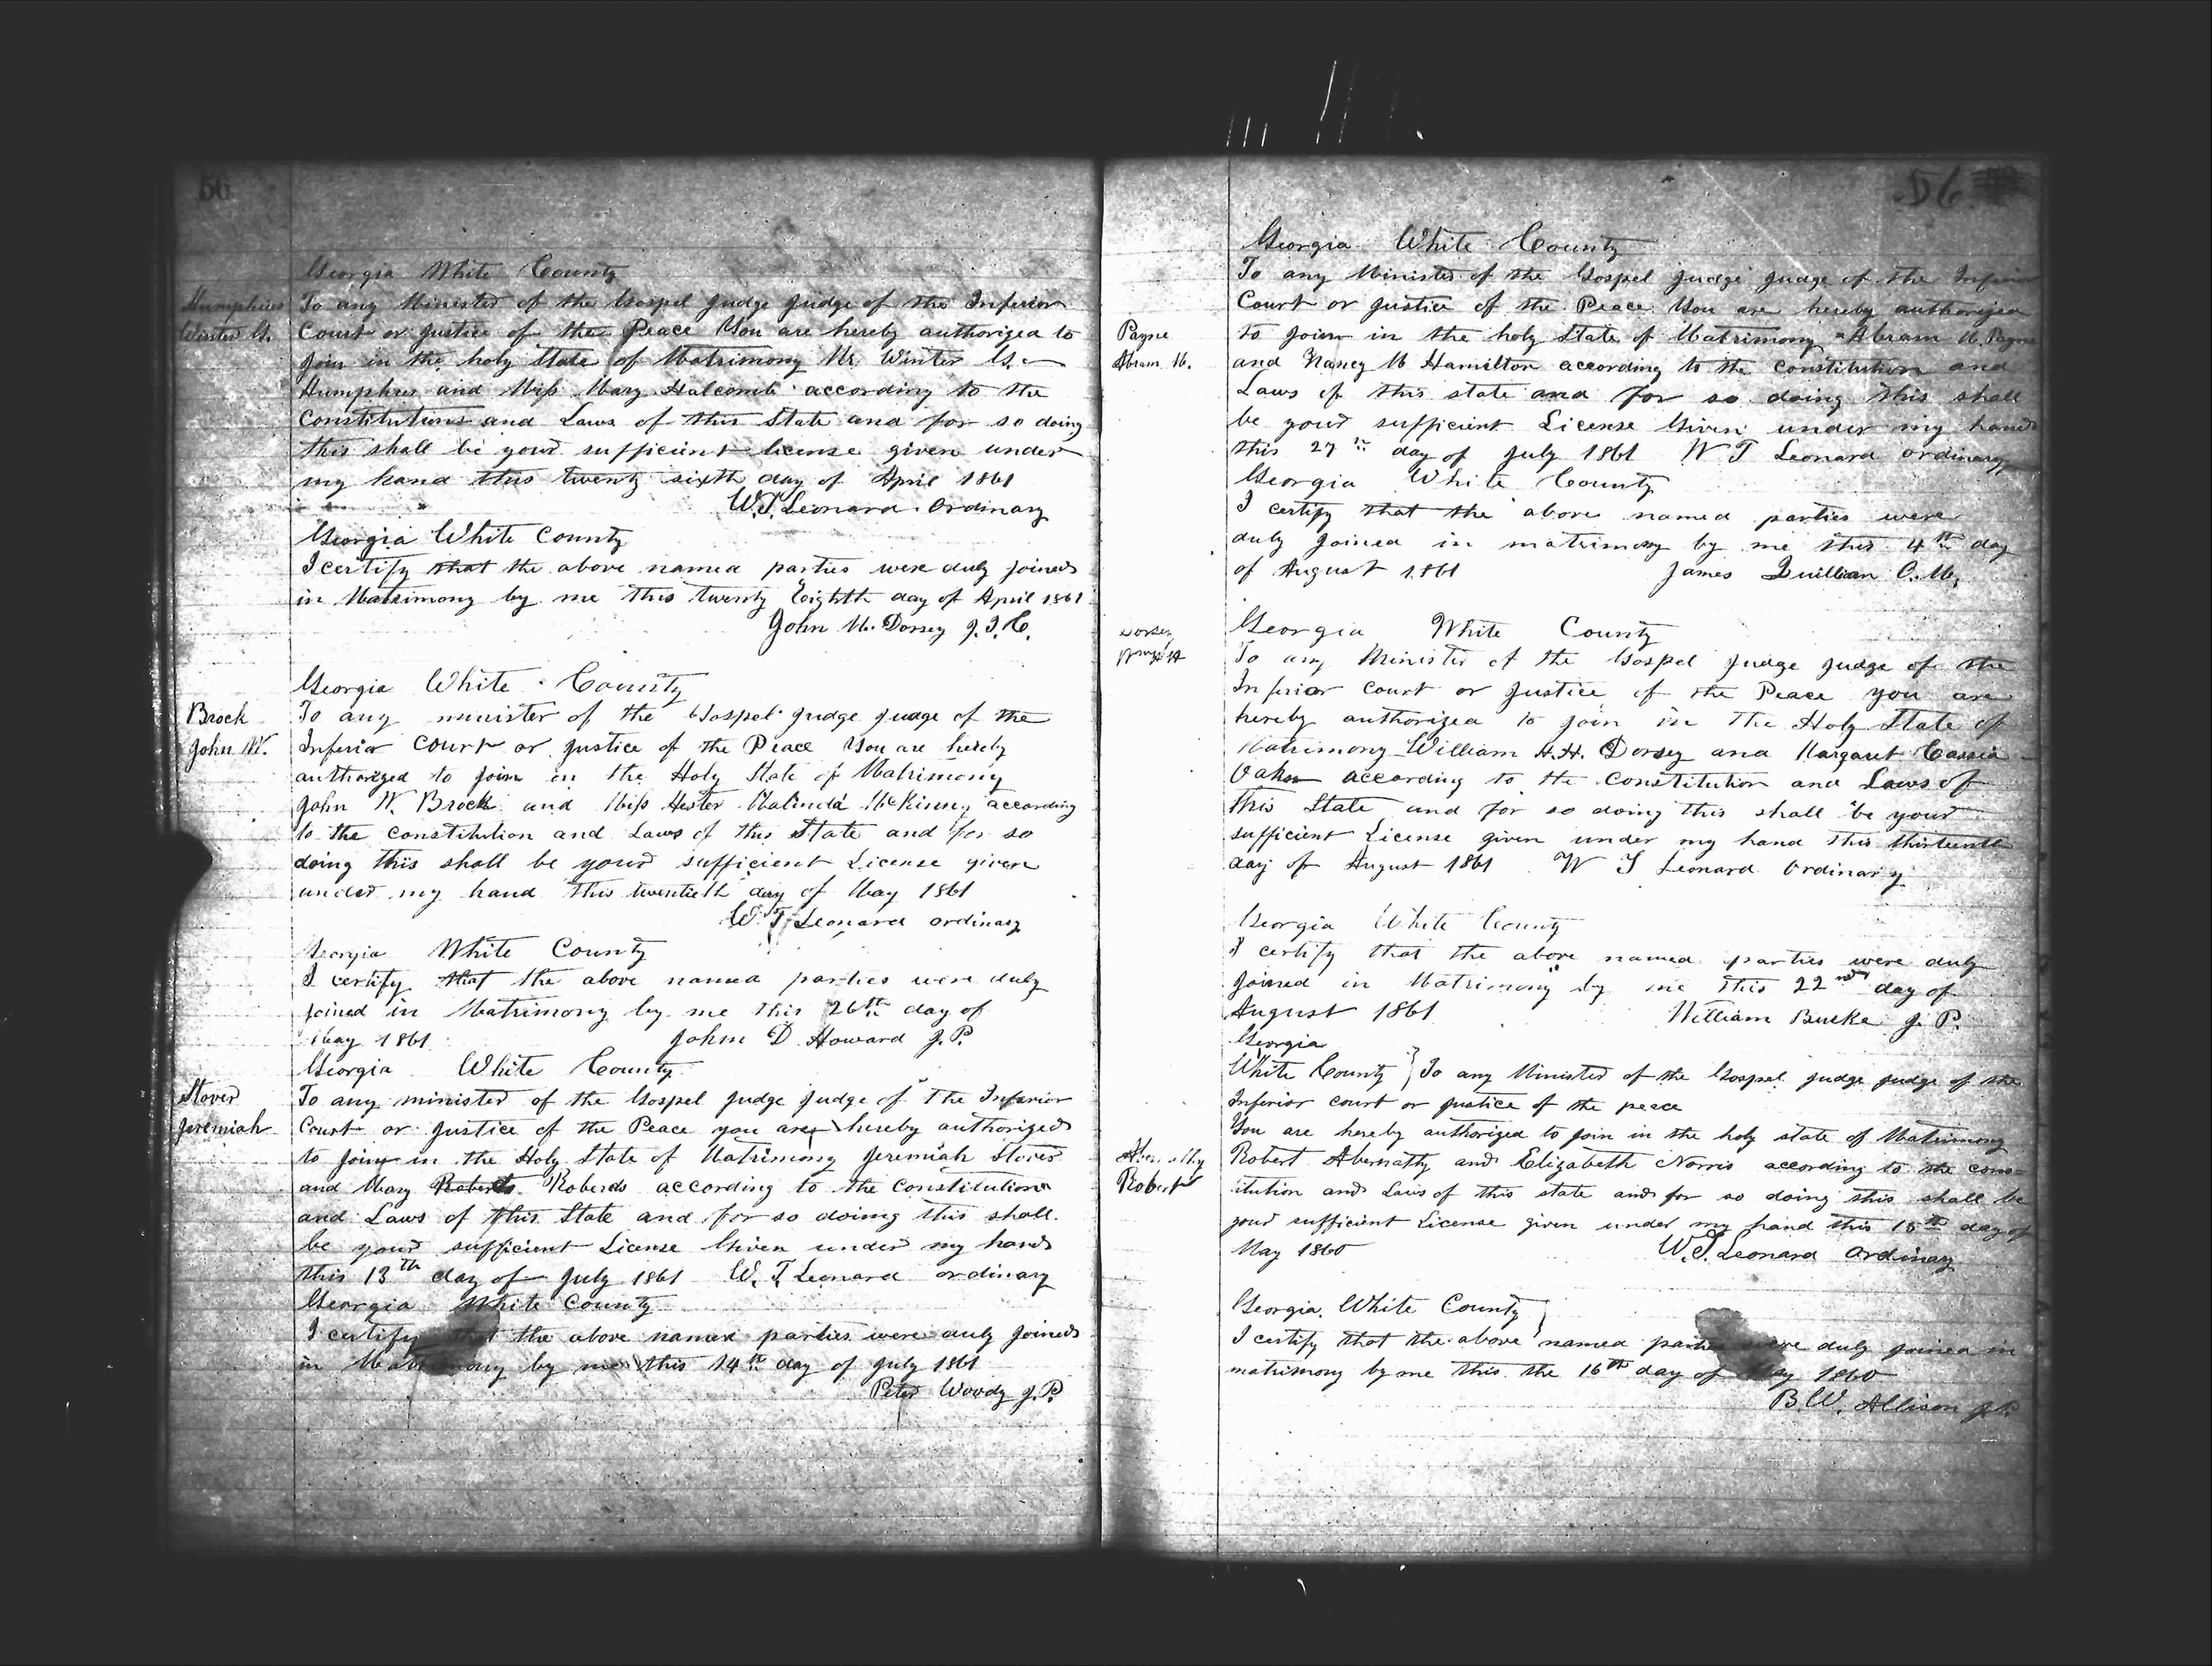 56
Georgia White County
Humphries To any Minister of the Gospel Judge Judge of the Inferior
Winter G. Court or Justice of the Peace You are hereby authorized to
join in the holy State of Matrimony Mr. Winter G.
Humphries and Miss Mary Halcomb according to the
Constitutions and Laws of this State and for so doing
this shall be your sufficient license given under
my hand this twenty sixth day of April 1861
W.T. Leonard Ordinary
Georgia White County
I certify that the above named parties were duly joined
in Matrimony by me this twenty Eighth day of April 1861
John M. Dorsey J.I.C.
Georgia White County
Brock To any minister of the Gospel Judge Judge of the
John W. Inferior Court or Justice of the Peace You are hereby
authorized to join in the Holy State of Matrimony
John W. Brock and Miss Hester Malinda McKinney according
to the constitution and Laws of this State and for so
doing this shall be your sufficient License given
under my hand this twentieth day of May 1861
W. T. Leonard ordinary
Georgia White County
I certify that the above named parties were duly
joined in Matrimony by me this 26th day of
May 1861 John D. Howard J.P.
Georgia White County
Stover To any minister of the Gospel Judge Judge of The Inferior
Jeremiah Court or Justice of the Peace you are hereby authorized
to join in the Holy State of Matrimony Jeremiah Stover
and Mary Roberts Roberds according to the Constitution
and Laws of this State and for so doing this shall
be your sufficient License Given under my hand
this 13th day of July 1861 W. T. Leonard ordinary
Georgia White County
I certify that the above named parties were duly joined
in Matrimony by me this 14th day of July 1861
Peter Woody J.P.
56
Georgia White County
To any Minister of the Gospel Judge Judge of the Inferior
Court or Justice of the Peace You are hereby authorized
Payne to join in the holy State of Matrimony Abram M. Payne
Abram M. and Nancy M Hamilton according to the Constitution and
Laws of this state and for so doing this shall
be your sufficient License Given under my hand
this 27th day of July 1861 W T Leonard ordinary
Georgia White County
I certify that the above named parties were
duly joined in matrimony by me this 4th day
of August 1861 James Quillian O.M.
Georgia White County
Dorsey
Wm H H To any Minister of the Gospel Judge Judge of the
Inferior Court or Justice of the Peace you are
hereby authorized to join in the Holy State of
Matrimony William H.H. Dorsey and Margaret Cassia
Oakes according to the Constitution and Laws of
this State and for so doing this shall be your
sufficient License given under my hand this thirteenth
day of August 1861 W T Leonard Ordinary
Georgia White County
I certify that the above named parties were duly
joined in Matrimony by me this 22nd day of
August 1861 William Burke J. P.
Georgia
White County } To any Minister of the Gospel judge judge of the
Inferior court or justice of the peace
You are hereby authorized to join in the holy state of Matrimony
Abernathy Robert Abernathy and Elizabeth Norris according to the cons-
Robert itution and Laws of this state and for so doing this shall be
your sufficient License given under my hand this 15th day of
May 1860 W.T. Leonard Ordinary
Georgia, White County }
I certify that the above named parties were duly joined in
matrimony by me this the 16th day of May 1860
B.W. Allison J.P.